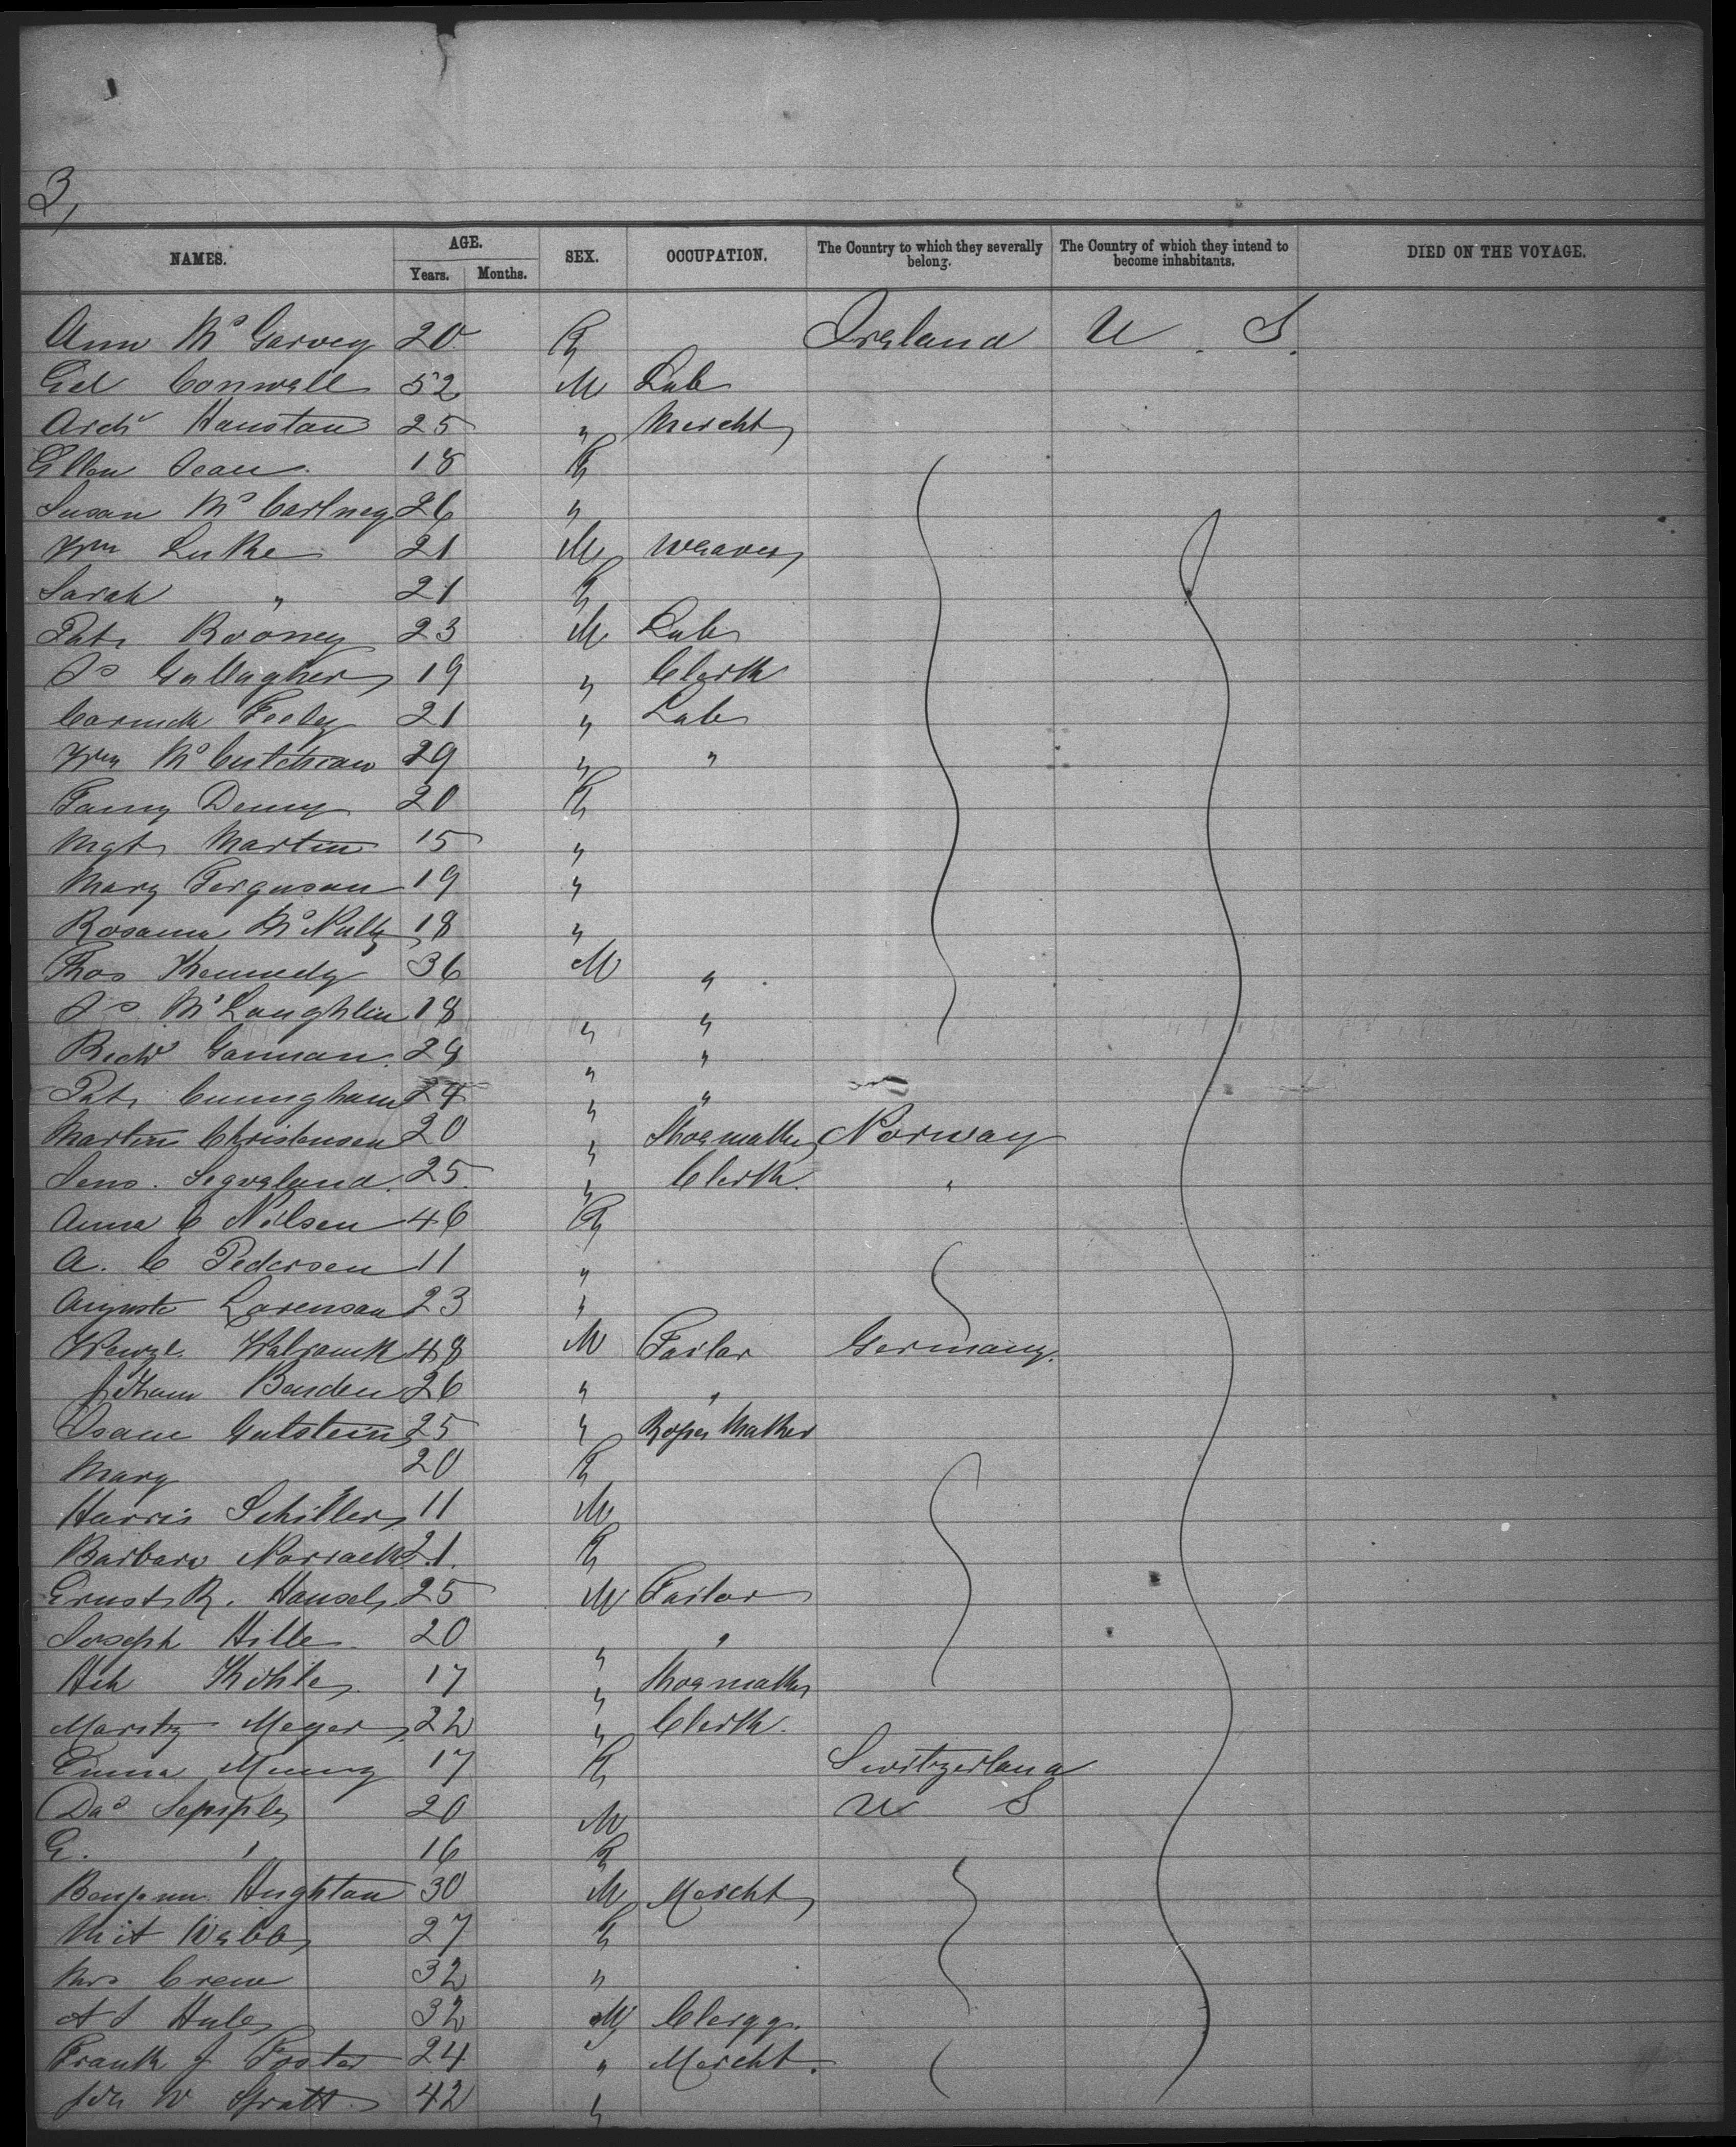 3,
NAMES. AGE. SEX. OCCUPATION. The Country to which they severally belong. The Country of which they intend to become inhabitants. DIED ON THE VOYAGE.
Years. Months.
Ann McGarvey 20 F Ireland U. S.
Conwell 52 M Lab
Archd Houstan 25 " Mercht
Ellen 18 F
Susan McCartney 26 "
Wm Luke 21 M Weaver
Sarah " 21 F
Patk Rooney 23 M Lab
Js Gallagher 19 " Clerk
Feeley 21 " Lab
Wm McCutchean 29 " "
Fanny Denny 20 F
Mgt Martin 15 "
Mary Ferguson 19 "
Rosanna McNulty 18 "
Thos Kennedy 36 M "
Js McLaughlin 18 " "
Richd Gannan 28 " "
Patk Cuningham 24 " "
Martin Christensen 20 " Shoemaker Norway
Jens. 25 " Clerk "
Anna C Nilsen 46 F
A. C Pedersen 11 "
Auguste Lorensen 23 "
48 M Tailor Germany.
Barden 26 " "
Gutstein 25 " Rope Maker
Mary 20 F
Harris Schiller 11 M
Barbara 21 F
Ernst R. Hansel 25 M Tailor
Joseph Hille 20 " "
Hch Kohle 17 " Shoemaker
Moritz Meyer 22 " Clerk
Emma 17 F Switzerland
20 M U S
E. " 16 F
Hughtan 30 M Mercht
Webb 27 F
Mrs Crew 32 "
32 M Clergy.
Frank J Foster 24 " Mercht.
Jno W Spratt 42 "